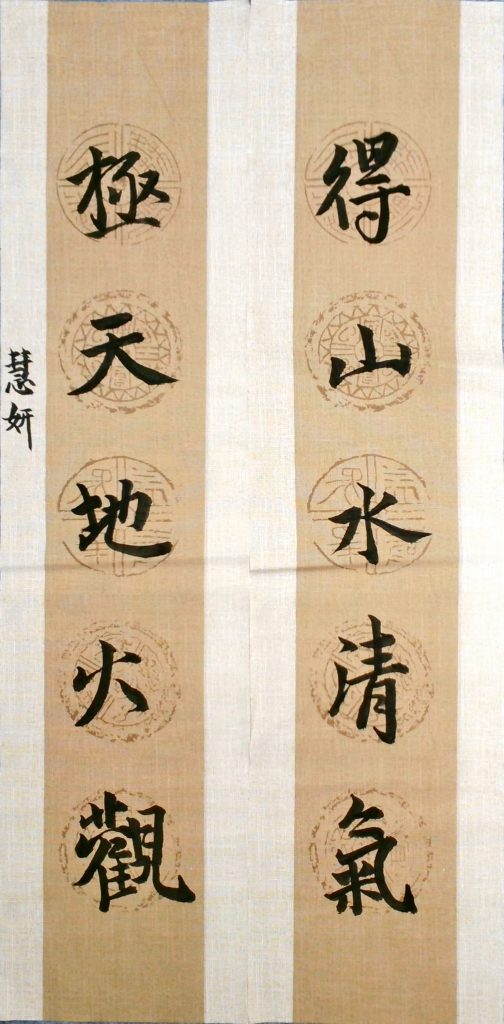 得山水清氣
極天地火觀
慧妍